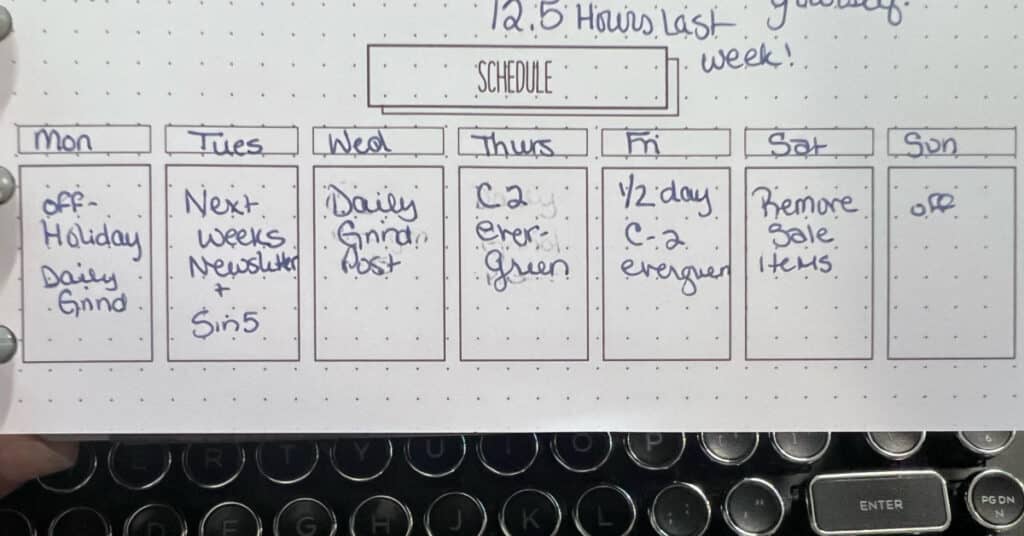 12.5 Hours Last
yourself.
week!
SCHEDULE
Mon
Tues
Wed
Thurs
Fri
Sat
Sun
off-
Holiday
Daily
Grind
Next
weeks
Newsletter
+
Sin5
Daily
Grind
Post
C2
ever-
green
1/2 day
C-2
evergreen
Remove
Sale
Items
off
R
T
Y
U
I
O
P
D
F
G
H
J
K
L
ENTER
PG DN
N